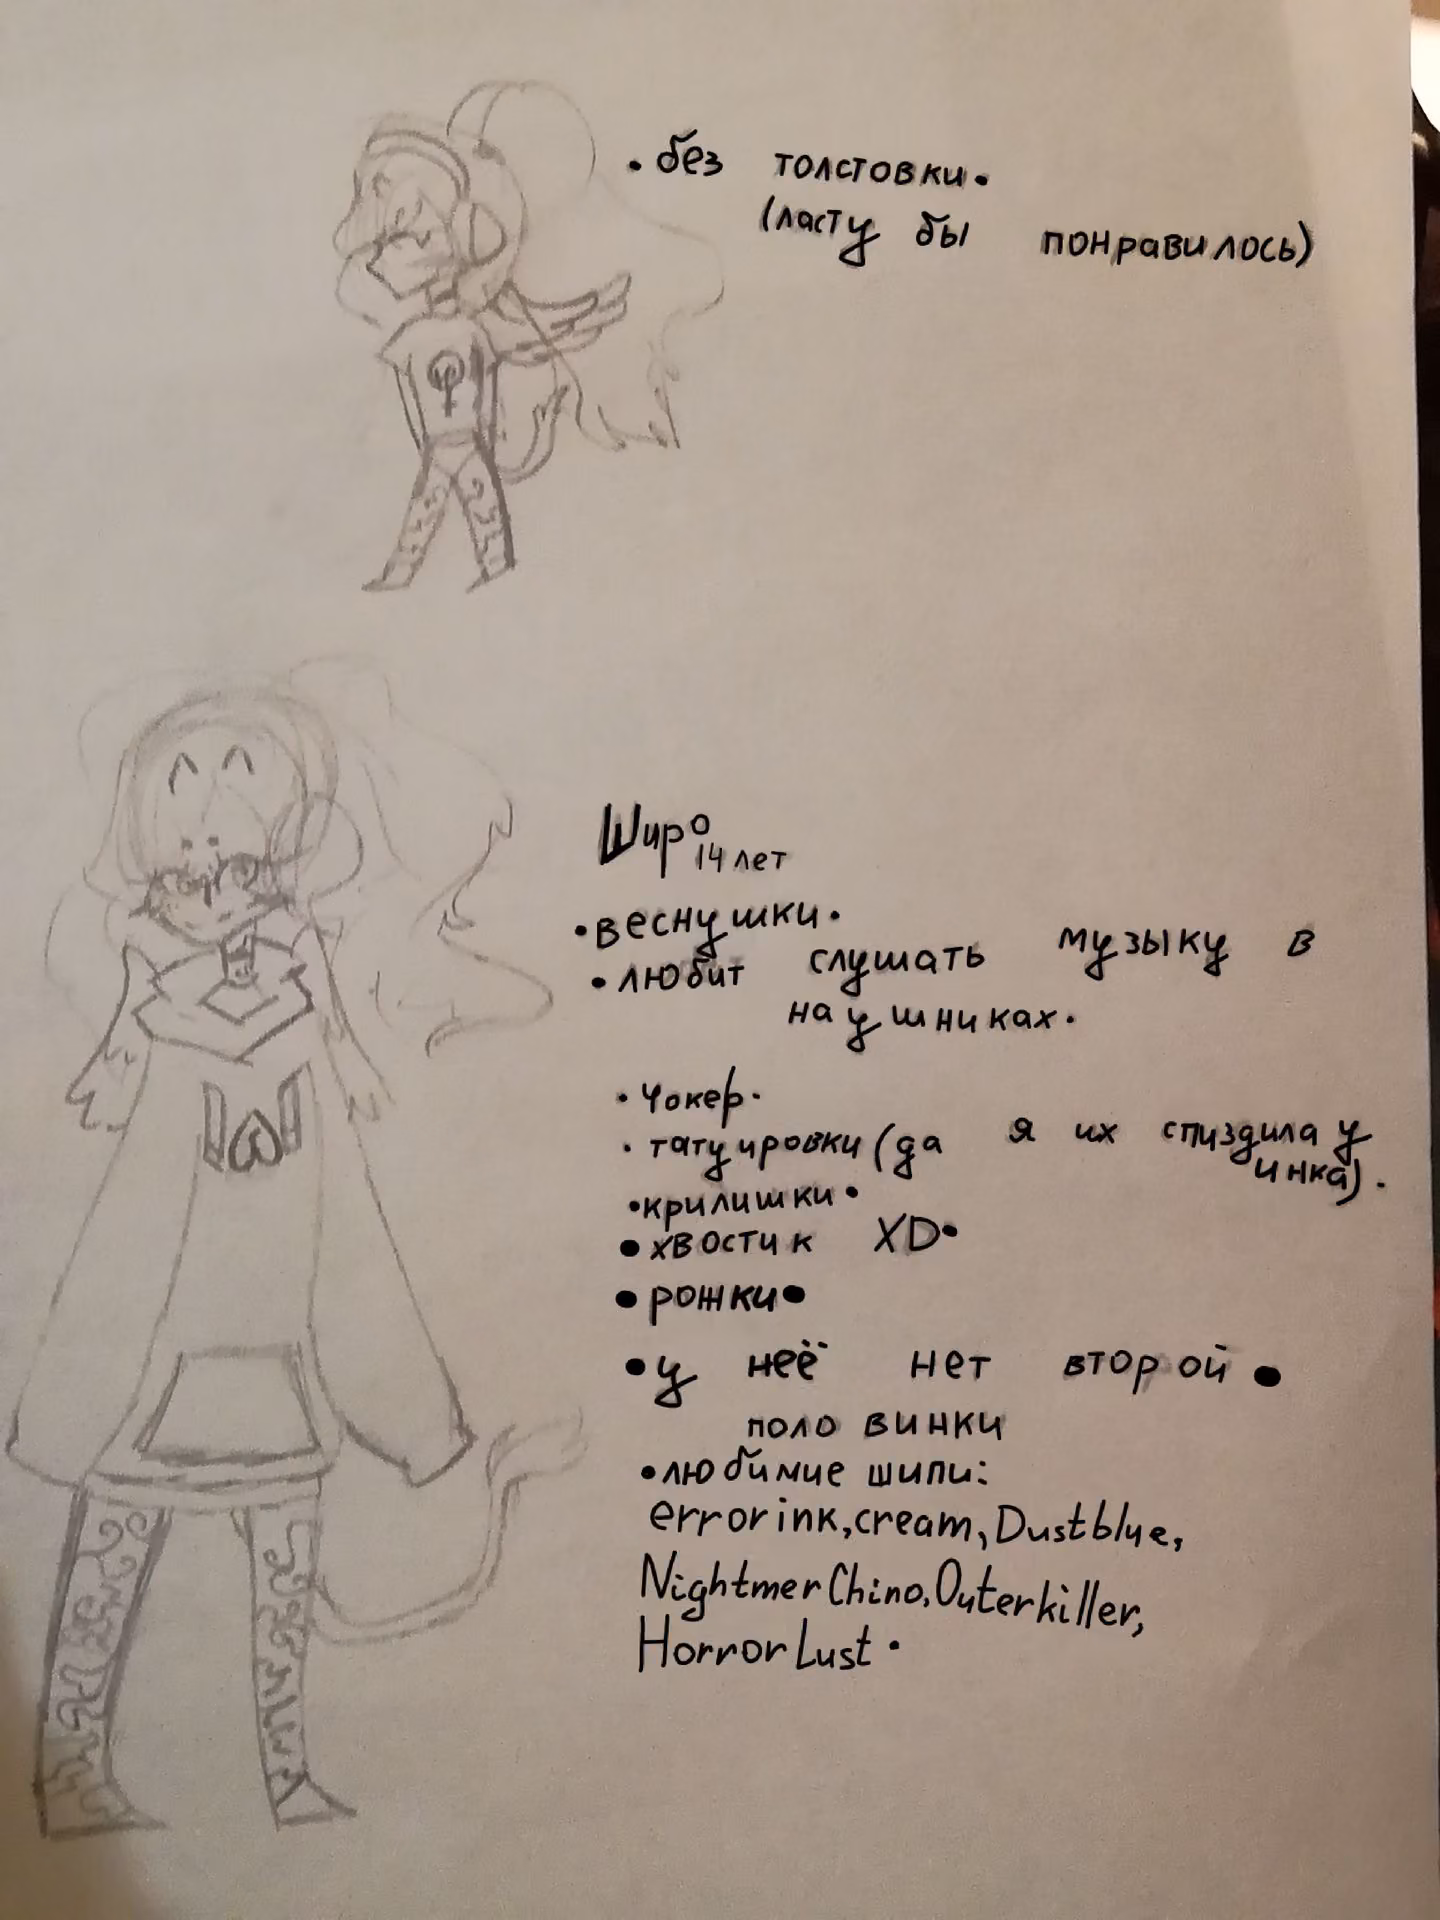 • без толстовки•
(ласту бы понравилось)
Широ
14 лет
•веснушки•
•любит слушать музыку в
наушниках•
•Чокер•
•татуировки (да я их спиздила у
инка).
•крилишки•
•хвостик XD•
•рожки•
•у неё нет второй•
половинки
•любимие шипи:
errorink, cream, Dustblue,
NightmerChino, Outerkiller,
HorrorLust•